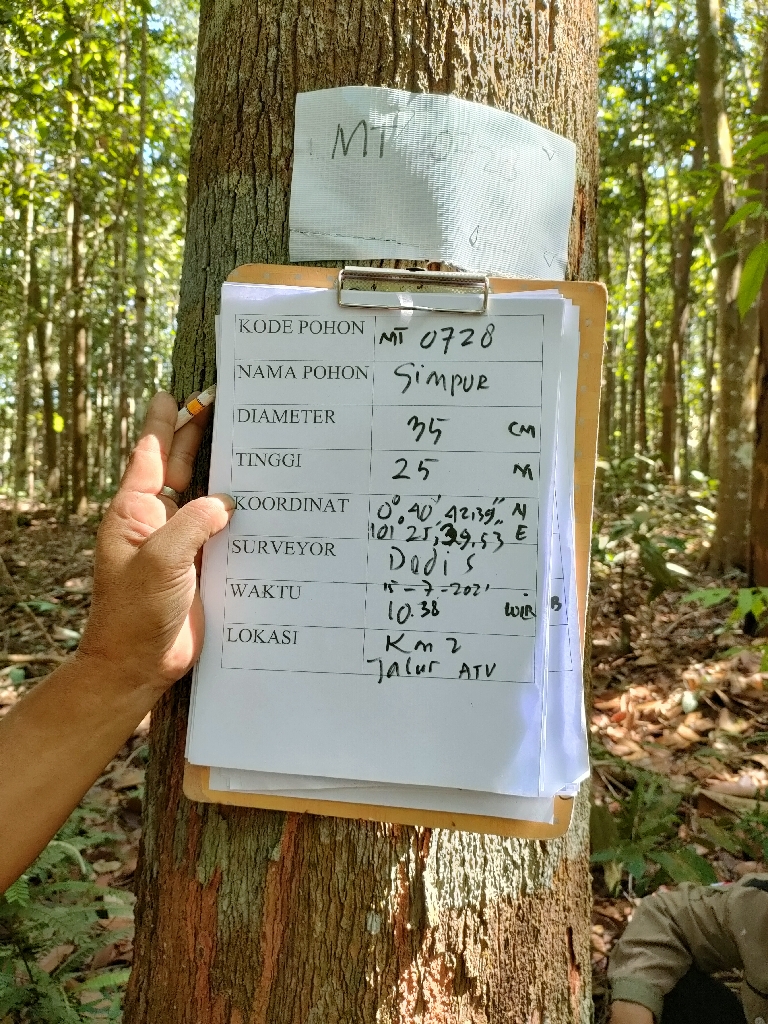 MT 0728
KODE POHON MT 0728
NAMA POHON Simpur
DIAMETER 35 CM
TINGGI 25 M
KOORDINAT 0° 40' 42,39" N
101° 25' 39,53 E
SURVEYOR Dodis
WAKTU 15-7-2021
10.38 WIB
LOKASI Km 2
Jalur ATV